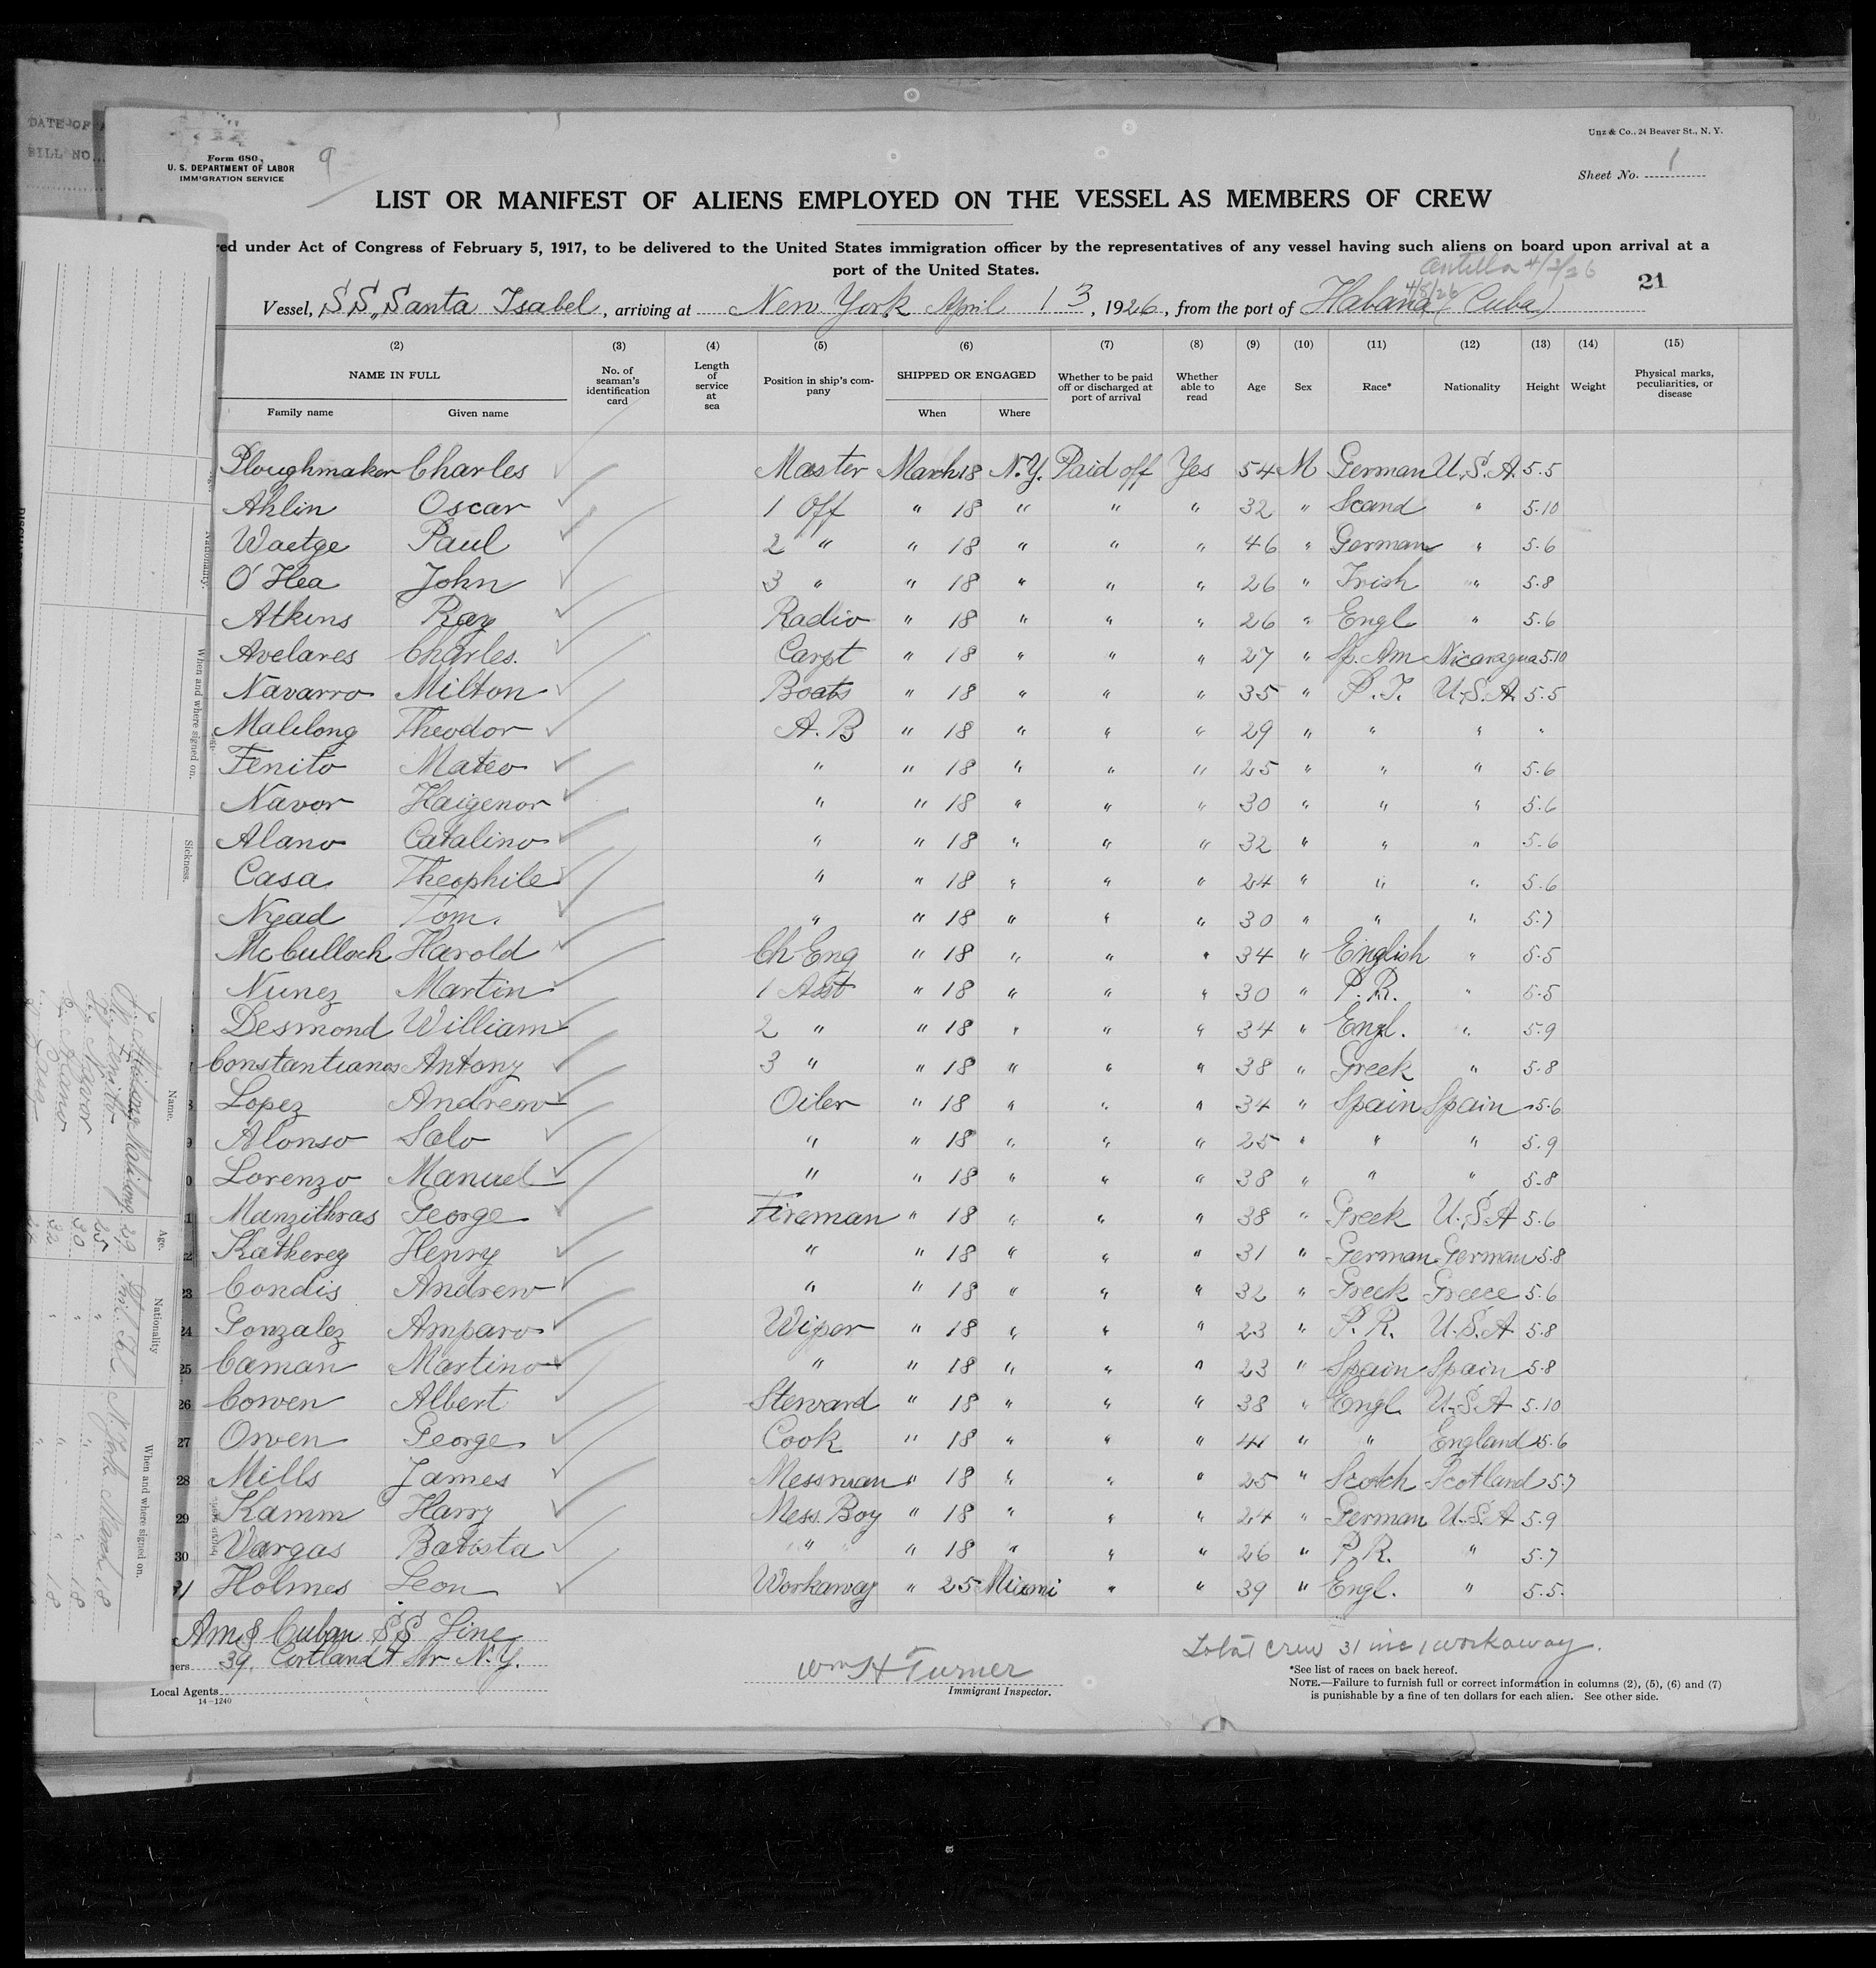 Unz & Co., 24 Beaver St., N. Y.
Form 680
U. S. DEPARTMENT OF LABOR
IMMIGRATION SERVICE
9
Sheet No. 1
LIST OR MANIFEST OF ALIENS EMPLOYED ON THE VESSEL AS MEMBERS OF CREW
red under Act of Congress of February 5, 1917, to be delivered to the United States immigration officer by the representatives of any vessel having such aliens on board upon arrival at a
port of the United States.
Antilla 4/3/26
21
Vessel, SS „Santa Isabel, arriving at New York April 13, 1926, from the port of Habana (Cuba)
(2) (3) (4) (5) (6) (7) (8) (9) (10) (11) (12) (13) (14) (15)
NAME IN FULL No. of seaman's identification card Length of service at sea Position in ship's company SHIPPED OR ENGAGED Whether to be paid off or discharged at port of arrival Whether able to read Age Sex Race* Nationality Height Weight Physical marks, peculiarities, or disease
Family name Given name When Where
Ploughmaker Charles Master March 18 N.Y. Paid off Yes 54 M German U.S.A. 5.5
Ahlin Oscar 1 Off " 18 " " " 32 " Scand " 5.10
Waetge Paul 2 " " 18 " " " 46 " German " 5.6
O'Hea John 3 " " 18 " " " 26 " Irish " 5.8
Atkins Ray Radio " 18 " " " 26 " Engl " 5.6
Avelares Charles. Carpt " 18 " " " 27 " Sp. Am Nicaragua 5.10
Navarro Milton Boats " 18 " " " 35 " P.I. U.S.A. 5.5
Malilong Theodor A.B " 18 " " " 29 " " " "
Tenito Mateo " " 18 " " " 25 " " " 5.6
Navor Haigenor " " 18 " " " 30 " " " 5.6
Alano Catalino " " 18 " " " 32 " " " 5.6
Casa Theophile " " 18 " " " 24 " " " 5.6
Nyad Tom. " " 18 " " " 30 " " " 5.7
McCulloch Harold Ch Eng " 18 " " " 34 " English " 5.5
Nunez Martin 1 Asst " 18 " " " 30 " P.R. " 5.5
Desmond William 2 " " 18 " " " 34 " Engl. " 5.9
Constantianos Antony 3 " " 18 " " " 38 " Greek " 5.8
Lopez Andrew Oiler " 18 " " " 34 " Spain Spain 5.6
Alonso Salo " " 18 " " " 25 " " " 5.9
Lorenzo Manuel " " 18 " " " 38 " " " 5.8
Manzithras George Fireman " 18 " " " 38 " Greek U.S.A 5.6
Katherez Henry " " 18 " " " 31 " German German 5.8
23 Condis Andrew " " 18 " " " 32 " Greek Greece 5.6
24 Gonzalez Amparo Wiper " 18 " " " 23 " P.R. U.S.A 5.8
25 Caman Martino " " 18 " " " 23 " Spain Spain 5.8
26 Cowen Albert Steward " 18 " " " 38 " Engl. U.S.A 5.10
27 Owen George Cook " 18 " " " 41 " " England 5.6
28 Mills James Messman " 18 " " " 25 " Scotch Scotland 5.7
29 Kamm Harry Mess Boy " 18 " " " 24 " German U.S.A 5.9
30 Vargas Batista " " " 18 " " " 26 " P.R. " 5.7
31 Holmes Leon Workaway " 25 Miami " " 39 " Engl. " 5.5.
Am & Cuban SS Line
39, Cortlandt Str N.Y.
Local Agents
14-1240
Wm H Turner
Immigrant Inspector.
Total crew 31 inc 1 workaway.
*See list of races on back hereof.
NOTE.—Failure to furnish full or correct information in columns (2), (5), (6) and (7)
is punishable by a fine of ten dollars for each alien. See other side.
DATE OF
BILL NO.
Nationality.
When and where signed on.
Sickness.
Name.
Age.
Nationality
When and where signed on.